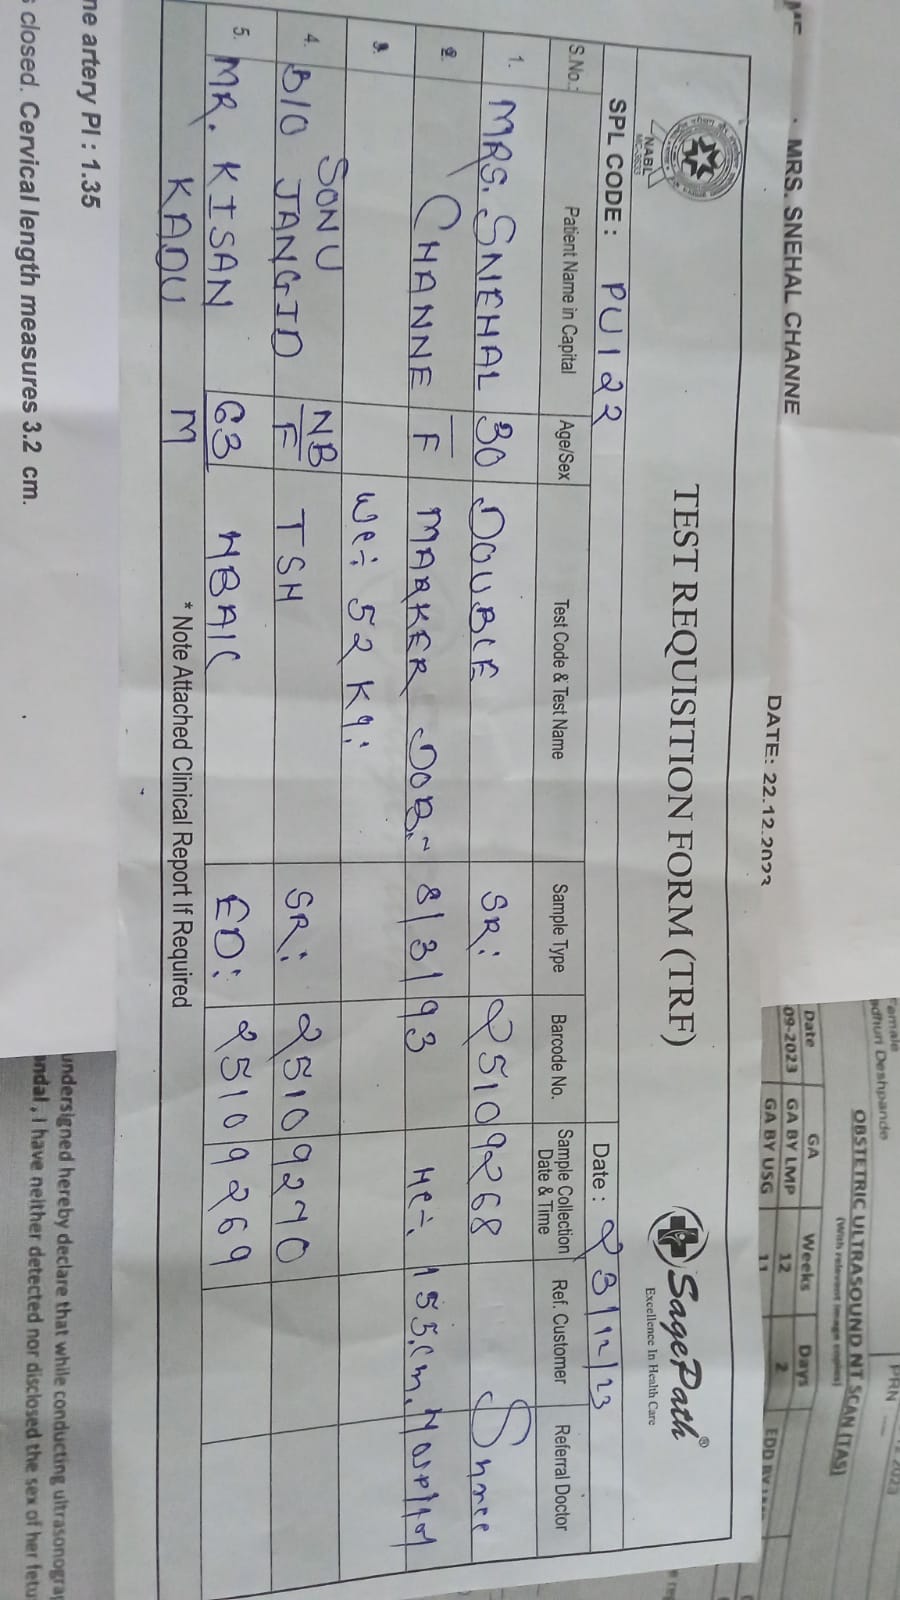 MRS. SNEHAL CHANNE
DATE: 22.12.2023
emale
dhuri Deshpande
PRN
OBSTETRIC ULTRASOUND NT SCAN (TAS)
(With relevant image copies)
Date GA Weeks Days
09-2023 GA BY LMP 12 2
GA BY USG 11
NABL
TEST REQUISITION FORM (TRF)
SagePath®
Excellence In Health Care
SPL CODE : PU122
Date : 23/12/23
S.No.: Patient Name in Capital Age/Sex Test Code & Test Name Sample Type Barcode No. Sample Collection Date & Time Ref. Customer Referral Doctor
1. MRS. SNEHAL 30 DOUBLE SR: 25109268 Shree
2. CHANNE F MARKER DOB:~ 8/3/93 He:- 155.cm. Hospital
3. We:- 52 Kg:
SONU NB
4. B/O JANGID F TSH SR: 25109270
5. MR. KISAN 63 HBA1C ED: 25109269
KADU M
* Note Attached Clinical Report If Required
ne artery PI : 1.35
s closed. Cervical length measures 3.2 cm.
undersigned hereby declare that while conducting ultrasonogra
ndal , I have neither detected nor disclosed the sex of her fetu